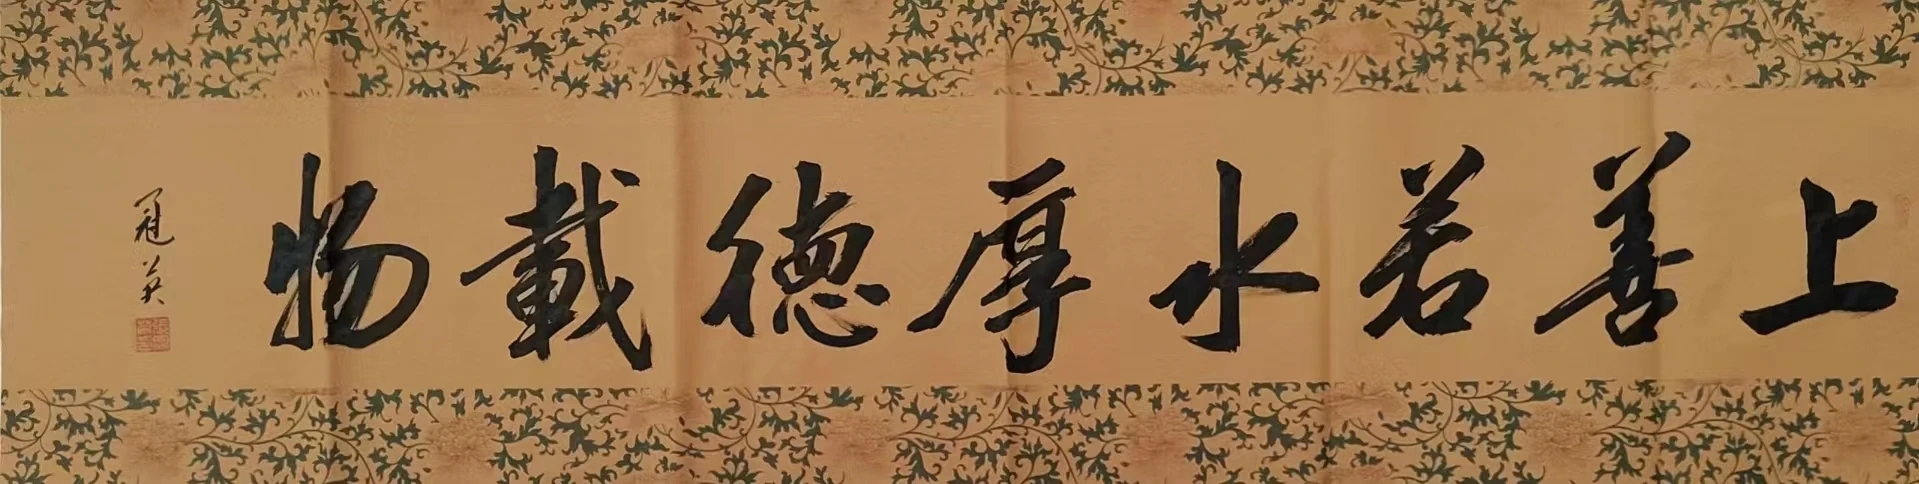 上善若水厚德載物
冠英